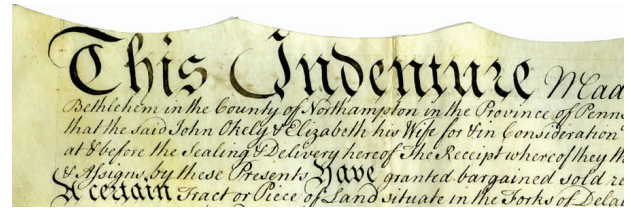 This Indenture Mad
Bethlehem in the County of Northampton in the Province of Penns
that the said John Okely & Elizabeth his Wife for & in Consideration
at & before the Sealing & Delivery hereof The Receipt whereof they th
& Assigns by these Presents Have granted bargained sold re
A certain Tract or Piece of Land situate in the Forks of Dela